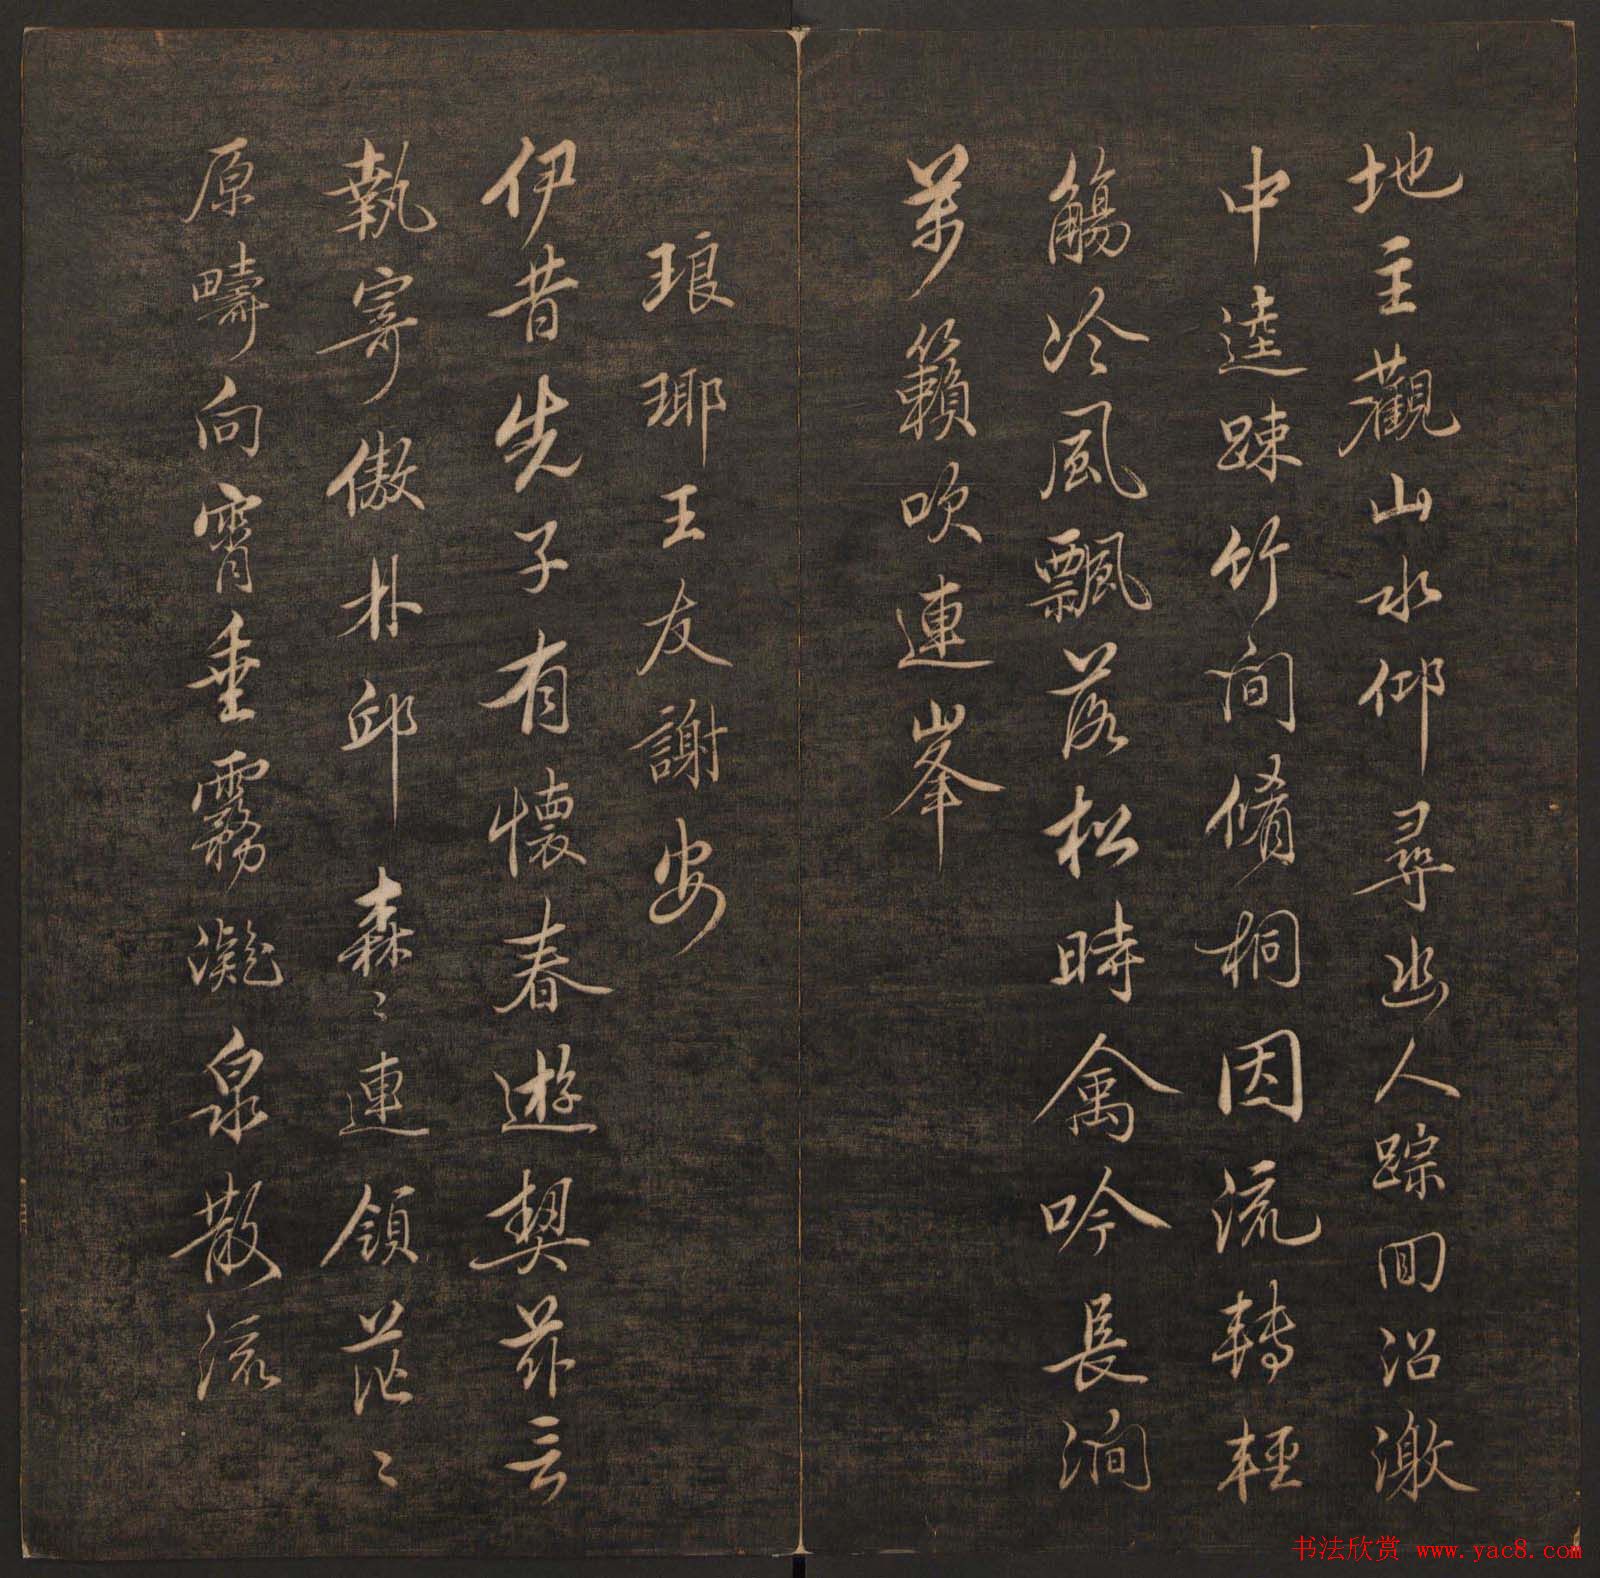 地主觀山水仰尋幽人踪回沼激
中逵踈竹间脩桐因流轉輕
觴冷風飄落松時禽吟長澗
萬籟吹連峯
琅瑘王友謝安
伊昔先子有懷春遊契茲言
執寄傲林邱森〻連領茫〻
原疇向霄垂霧凝泉散流
书法欣赏 www.yac8.com